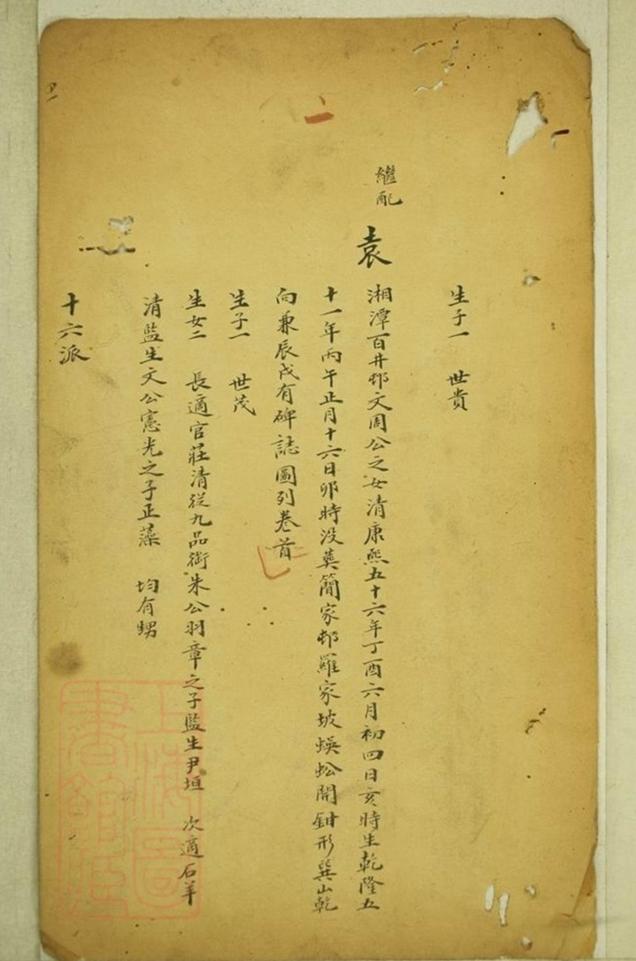 生子一　世貴
繼配
袁
湘潭百井邨文周公之女清康熙五十六年丁酉六月初四日亥時生乾隆五
十一年丙午正月十六日卯時没葬簡家邨羅家坡蜈蚣開鉗形巽山乾
向兼辰戌有碑誌圖列巻首
生子一　世茂
生女二　長適官莊清從九品銜朱公羽章之子監生尹垣　次適石羊
清監生文公憲光之子正藻　均有甥
十六派
上海圖
書館藏